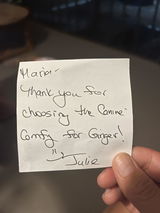 Maria-
Thank you for
choosing the Canine-
Comfy for Ginger!
Julie